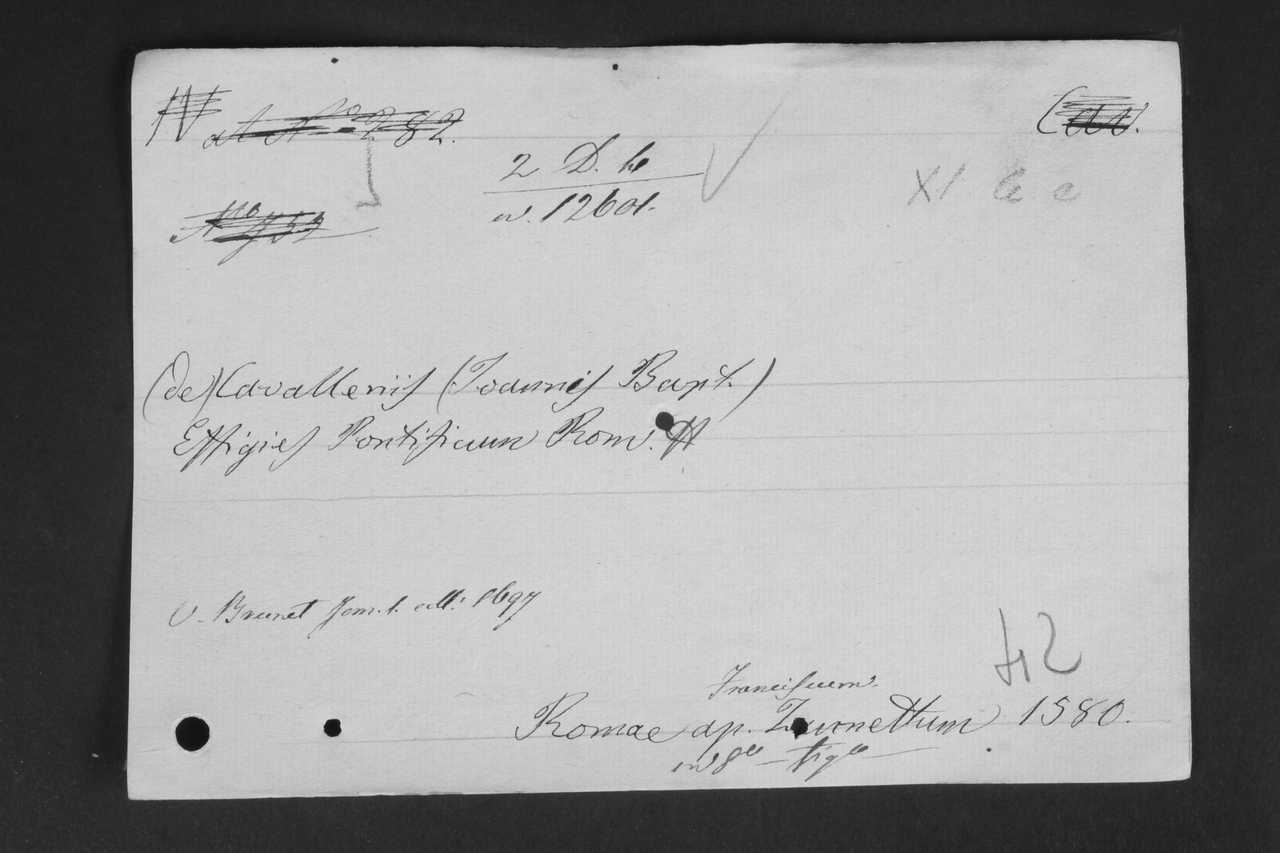 282.
Cav.
2 D. b
w. 12601.
XI
(de) Cavalleriis (Joannis Bapt.)
Effigies Pontificum Rom.
v. Brunet Tom. 1. all: 1697
42
Franciscum
Romae ap. Zannettum 1580.
in 8º fig.